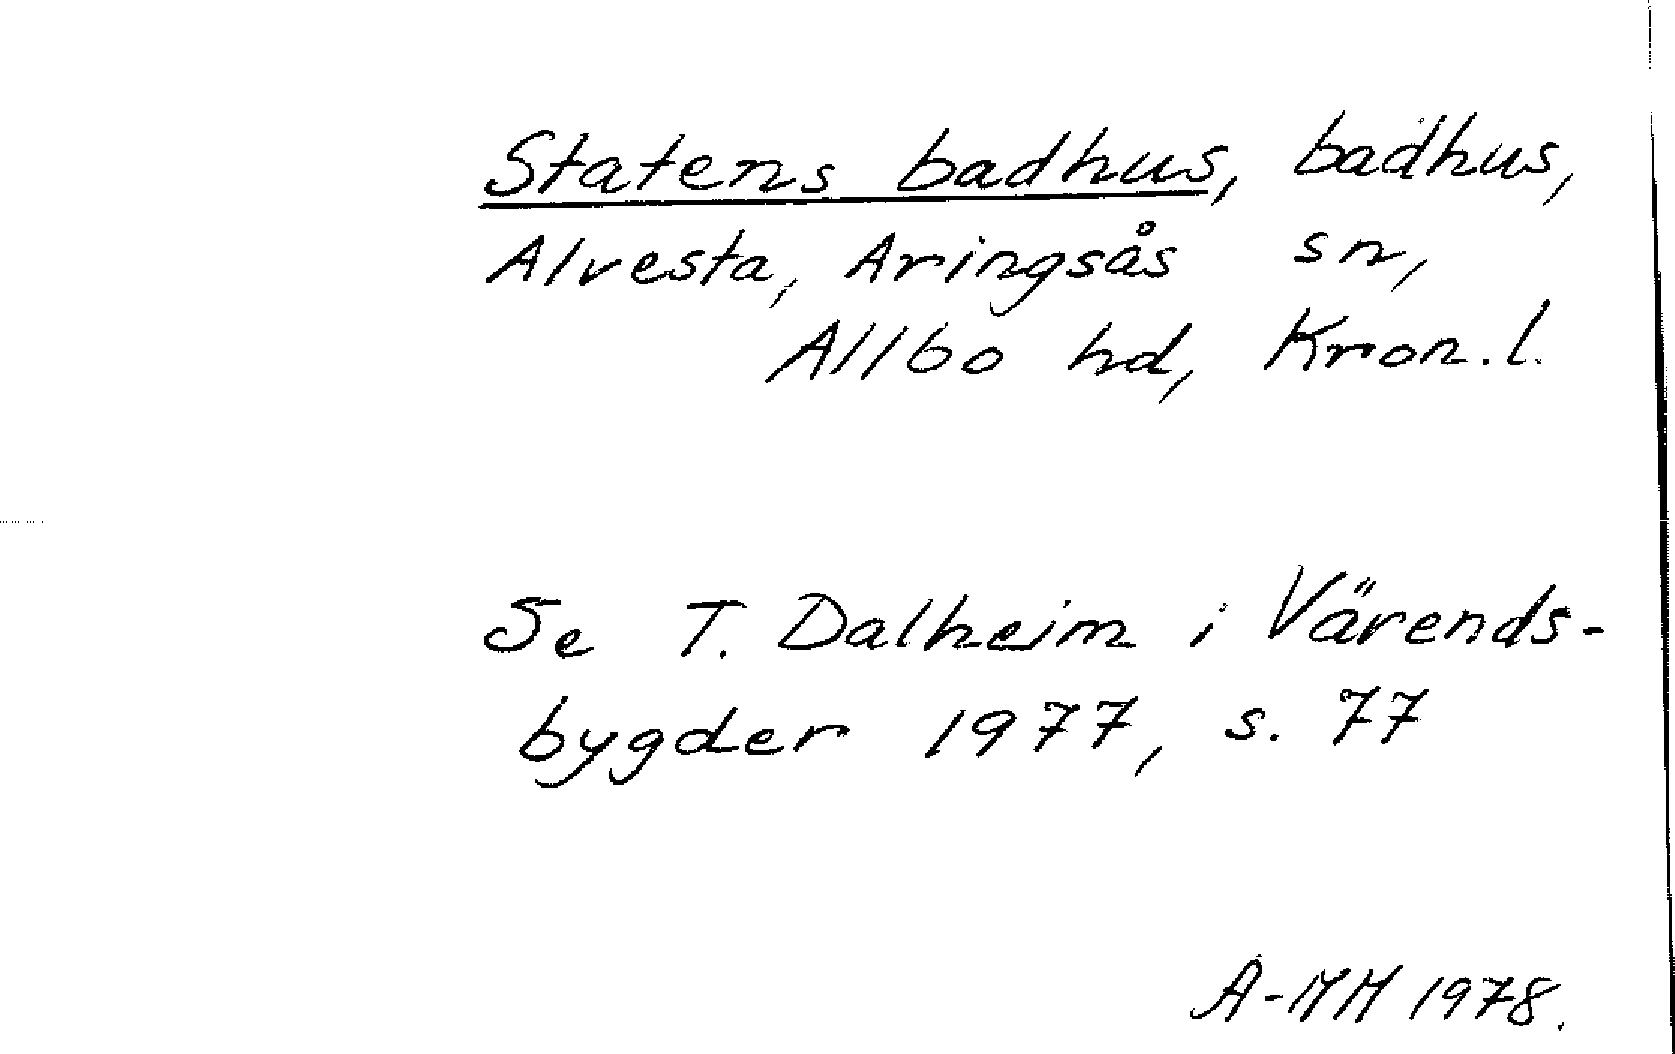 Statens badhus, badhus,
Alvesta, Aringsås sn,
Allbo hd, Kron.l.
Se T. Dalheim i Värends-
bygder 1977, s. 77
A-MM 1978.